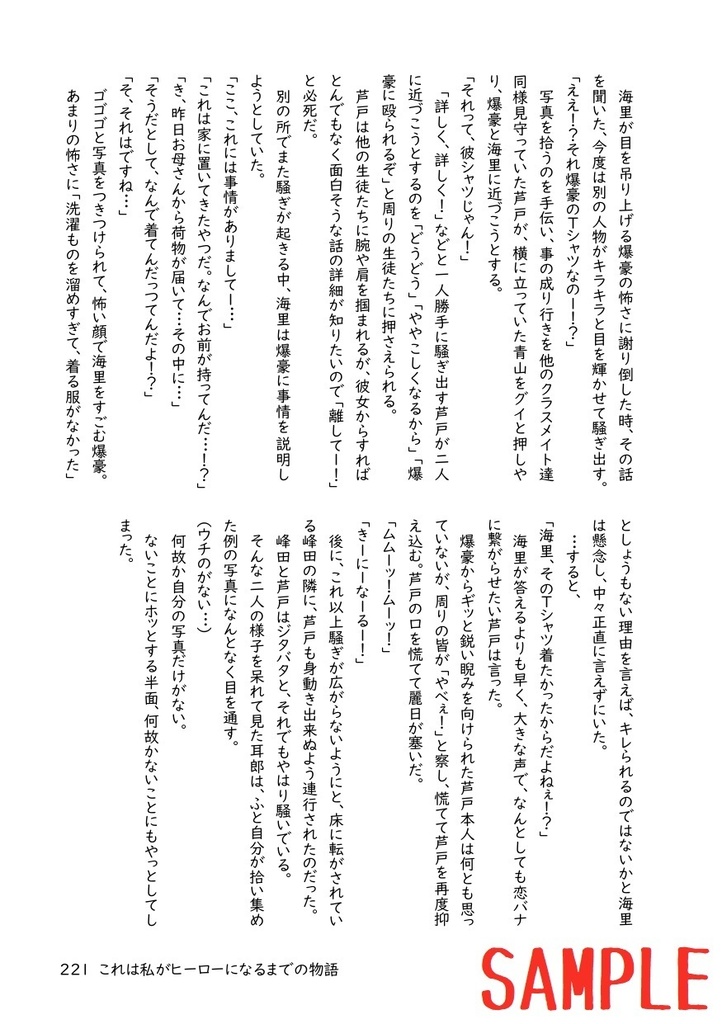 海里が目を吊り上げる爆豪の怖さに謝り倒した時、その話
を聞いた、今度は別の人物がキラキラと目を輝かせて騒ぎ出す。
「ええ！？それ爆豪のTシャツなのー！？」
写真を拾うのを手伝い、事の成り行きを他のクラスメイト達
同様見守っていた芦戸が、横に立っていた青山をグイと押しや
り、爆豪と海里に近づこうとする。
「それって、彼シャツじゃん！」
「詳しく、詳しく！」などと一人勝手に騒ぎ出す芦戸が二人
に近づこうとするのを「どうどう」「ややこしくなるから」「爆
豪に殴られるぞ」と周りの生徒たちに押さえられる。
芦戸は他の生徒たちに腕や肩を掴まれるが、彼女からすれば
とんでもなく面白そうな話の詳細が知りたいので「離してー！」
と必死だ。
別の所でまた騒ぎが起きる中、海里は爆豪に事情を説明し
ようとしていた。
「ここ、これには事情がありましてー…」
「これは家に置いてきたやつだ。なんでお前が持ってんだ…！？」
「き、昨日お母さんから荷物が届いて…その中に…」
「そうだとして、なんで着てんだっつてんだよ！？」
「そ、それはですね…」
ゴゴゴと写真をつきつけられて、怖い顔で海里をすごむ爆豪。
あまりの怖さに「洗濯ものを溜めすぎて、着る服がなかった」
としょうもない理由を言えば、キレられるのではないかと海里
は懸念し、中々正直に言えずにいた。
…すると、
「海里、そのTシャツ着たかったからだよねぇ！？」
海里が答えるよりも早く、大きな声で、なんとしても恋バナ
に繋がらせたい芦戸は言った。
爆豪からギッと鋭い睨みを向けられた芦戸本人は何とも思っ
ていないが、周りの皆が「やべぇ！」と察し、慌てて芦戸を再度抑
え込む。芦戸の口を慌てて麗日が塞いだ。
「ムムーッ！ムーッ！」
「きーにーなーるー！」
後に、これ以上騒ぎが広がらないようにと、床に転がされてい
る峰田の隣に、芦戸も身動き出来ぬよう連行されたのだった。
峰田と芦戸はジタバタと、それでもやはり騒いでいる。
そんな二人の様子を呆れて見た耳郎は、ふと自分が拾い集め
た例の写真になんとなく目を通す。
（ウチのがない…）
何故か自分の写真だけがない。
ないことにホッとする半面、何故かないことにもやっとしてし
まった。
221 これは私がヒーローになるまでの物語
SAMPLE